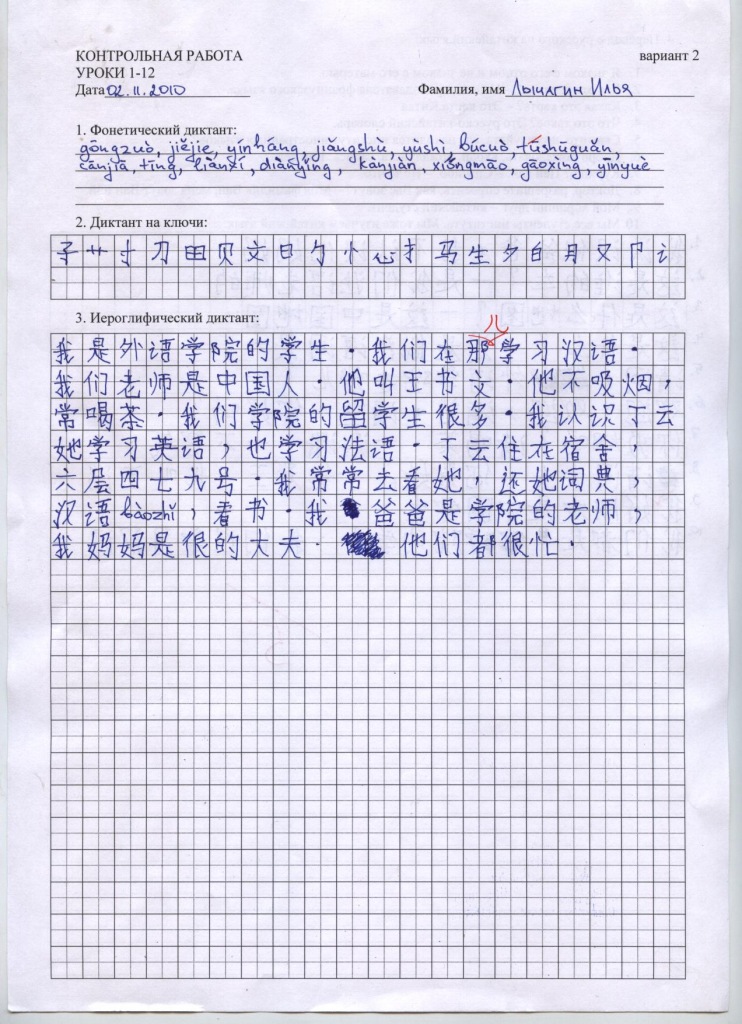 КОНТРОЛЬНАЯ РАБОТА
вариант 2
УРОКИ 1-12
Дата 02.11.2010 Фамилия, имя Лычагин Илья
1. Фонетический диктант:
gōngzuò, jiějie, yínháng, jiǎngshù, yùshì, búcuò, túshūguǎn,
cānjiā, tīng, liànxí, diànyǐng, kànjiàn, xióngmāo, gāoxìng, yīnyuè
2. Диктант на ключи:
子 艹 寸 刀 田 贝 文 日 勹 忄 心 扌 马 生 夕 白 月 又 卩 讠
3. Иероглифический диктант:
儿
我是外语学院的学生. 我们在那学习汉语.
我们老师是中国人. 他叫王书文. 他不吸烟,
常喝茶. 我们学院的留学生很多. 我认识丁云
她学习英语, 也学习法语. 丁云住在宿舍,
六层四七九号. 我常常去看她, 还她词典,
汉语 bàozhǐ, 看书. 我 爸爸是学院的老师,
我妈妈是很的大夫. 他们都很忙.